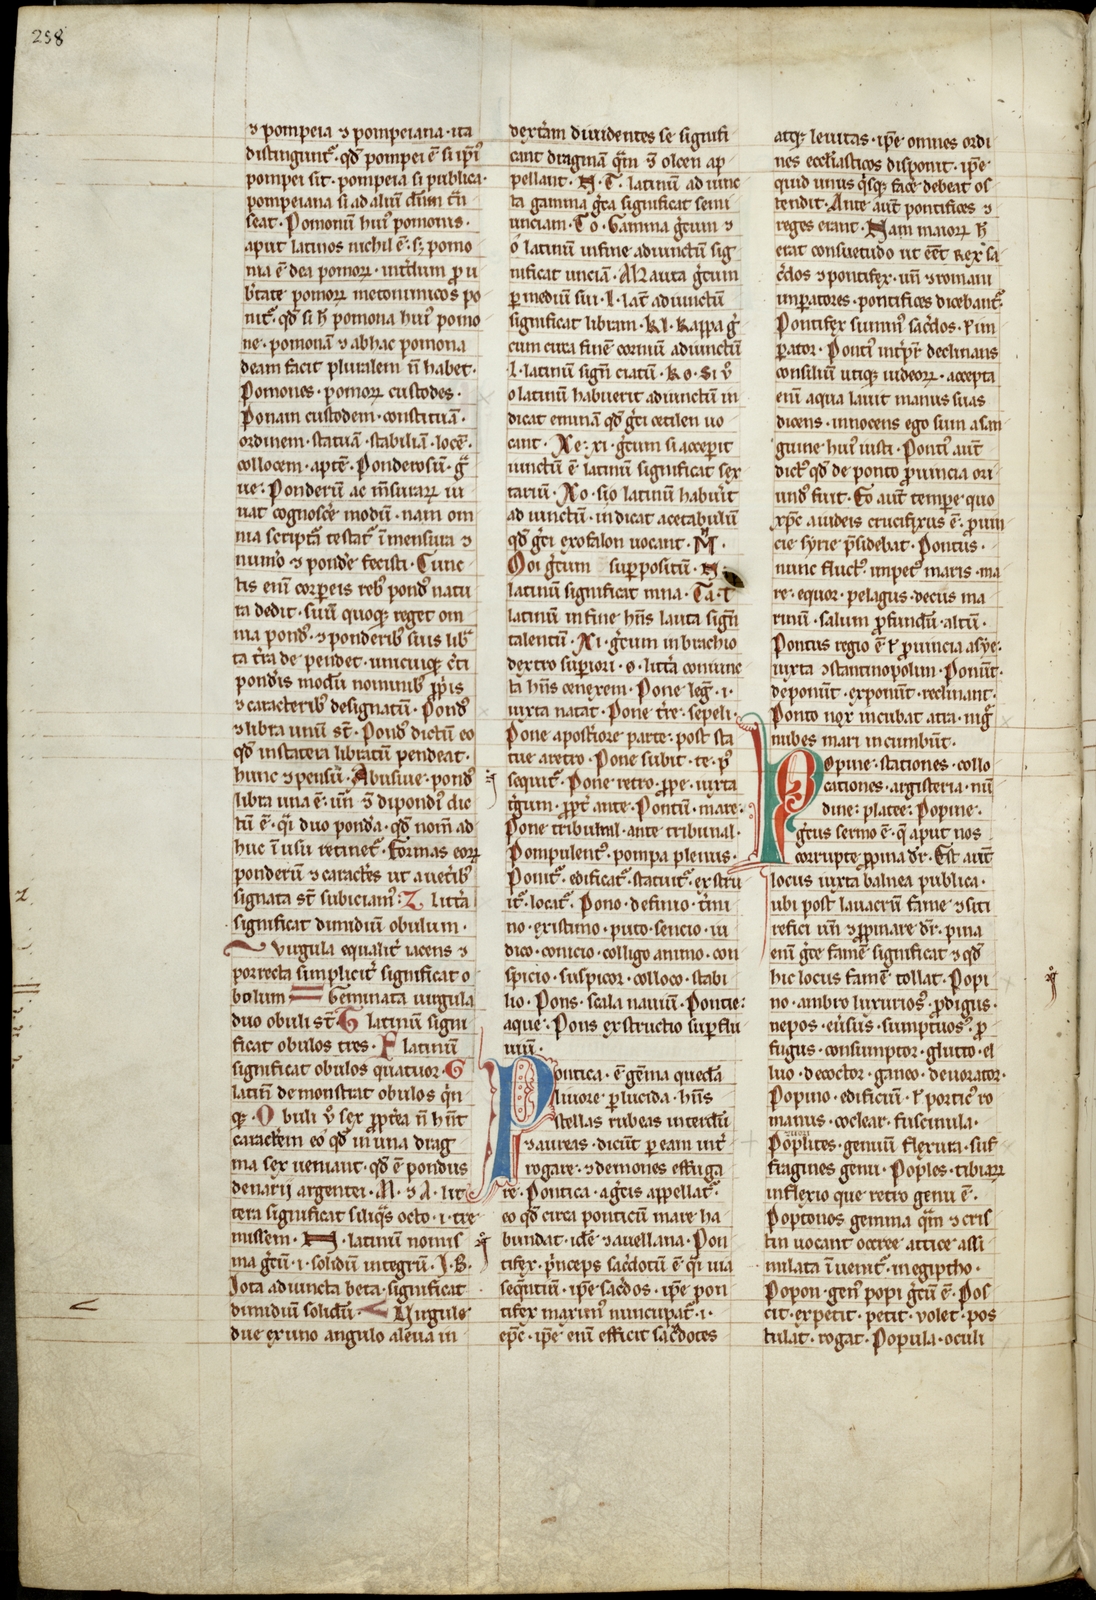 258
⁊ pompeia ⁊ pompeiana · ita
distingunt᷑ · qd̄ pompei ē si ip̄i᷒
pompei sit · pompeia si publica ·
pompeiana si ad aliū
seat · Pomoniū hui᷒ pomonis ·
aput latinos nichil ē · sꝫ pomo
na ē dea pomoꝝ · int̄dum ꝓ u
b̄tate pomoꝝ metonimicos po
nit᷑ · qd̄ si h̄ pomona hui᷒ pomo
ne · pomonā ⁊ ab hac pomona
deam facit pluralem n̄ habet ·
Pomones · pomoꝝ custodes ·
Ponam custodem · constituā ·
ordinem · statuā · stabiliā · locē ·
collocem · aptē · Ponderosū · g᷑
ue · Ponderū ac m̄suraꝝ iu
uat cognosc̄e modū · nam om
nia scriptā testat᷑ ī mensura ⁊
num̄o ⁊ pond̄e fecisti · Cunc
tis enī corꝑeis reb᷒ pond᷒ natu
ra dedit · suū quoqꝫ reget om
nia pond᷒ · ⁊ ponderib᷒ suis lib᷑
ta t̄ra de pendet · unicuiqꝫ c̄ti
pond̄is modū nominib᷒ ꝓp̄is
⁊ caracterib᷒ designatū · Pond᷒
⁊ libra unū st̄ · Pond᷒ dictū eo
qd̄ in statera libratū pendeat ·
hinc ⁊ pensū · Abusiue · pond᷒
libra una ē · un̄ ⁊ dipondi᷒ dic
tū ē · q̄i duo ponda · qd̄ nom̄ ad
huc ī usu retinet᷑ · Formas eoꝝ
ponderū ⁊ caract̄es ut a uet̄ib᷒
signata st̄ subiciam᷒ · Z litt̄a
significat dimidiū obulum ·
~ virgula equalit̄ iacens ⁊
porrecta simplicit̄ significat o
bolum = Geminata uirgula
duo obuli st̄ · G latinū signi
ficat obulos tres · F latinū
significat obulos quatuor · G
latin̄ de monstrat obulos q̄n
qꝫ · Obuli v̄ sex ꝓpt̄ea n̄ hn̄t
caract̄em eo qd̄ in una drag
ma sex ueniant · qd̄ ē pondus
denarij argentei · N · ⁊ A · lit
tera significat siliq̄s octo · i · tre
missem · N · latinū nomis
ma g᷑cū · i · solidū integrū · I · B ·
Iota adiuncta beta · significat
dimidiū solidū · < Uirgule
due ex uno angulo a leua in
dextram diuidentes se signifi
cant dragmā q̄m ⁊ olcen ap
pellant · N · T · latinū ad iunc
ta gamma g᷑ca significat semi
unciam · T o · Gamma g᷑cum ⁊
o latinū in fine adiunctū sig
nificat unciā · Alauta g᷑cum
ꝑ mediū sui · l · lat̄ adiunctū
significat libram · kl · kappa g᷑
cum circa finē cornuū adiunctū
l · latinū sign̄ ciatū · k o · Si v̄
o latinū habuerit adiunctū in
dicat eminā qd̄ g᷑ci cotilen uo
cant · Xe · xi · g᷑cum si acceꝑit
iunctū ē latinū significat sex
tariū · Xo · si o latinū habu̅it
ad iunctū · indicat acetabulū
qd̄ g᷑ci exofalon uocant · M ·
Moi g᷑cum suꝑpositū · N ·
latinū significat mna · Ta · t
latinū in fine hn̄s iauta sign̄
talentū · Xi · g᷑cum in brachio
dextro suꝑiori · e · litt̄a coniunc
ta hn̄s cenexem · Pone leg᷑ · i ·
iuxta natat · Pone t̄re · sepeli ·
Pone a post̄iore parte · post sta
tue a retro · Pone subit · te · p᷒
sequit᷑ · Pone retro · ꝓpe · iuxta
t̄gum · ꝓpt̄ ante · Pontū · mare ·
Pone tribunal · ante tribunal ·
Pompulent᷒ · pompa plenus ·
Ponit᷑ · edificat᷑ · statuit᷑ · ex stru
it᷑ · locat᷑ · Pono · definio · t̄mi
no · existimo · puto · sencio · iu
dico · conicio · colligo animo · con
spicio · suspicor · colloco · stabi
lio · Pons · scala nauiū · Pontie ·
aque · Pons exstructio suꝑflu
uiū ·
Pontica · ē gēma quedā
liuore ꝑlucida · hn̄s
stellas rubeas interdū
⁊ aureas · dicūt ꝑ eam int̄
rogare · ⁊ demones effuga
re · Pontica · a g᷑cis appellat᷑ ·
eo qd̄ circa ponticū mare ha
bundat · id ē ⁊ auellana · Pon
tifex · p̄nceps sac̄dotū ē q̄i uia
seqūtiū · ip̄e sac̄dos · ip̄e pon
tifex maxim᷒ nuncupat᷑ · i ·
ep̄c · ip̄e enī efficit sac̄dotes
atqꝫ leuitas · ip̄e omnes ordi
nes eccl̄iasticos disponit · ip̄e
quid unus q̄sqꝫ fac̄e debeat os
tendit · Ante aut̄ pontifices ⁊
reges erant · Nam maioꝝ h̄
erat consuetudo ut eēt rex sa
c̄dos ⁊ pontifex · un̄ ⁊ romani
imꝑatores · pontifices dicebant᷑ ·
Pontifex summ᷒ sac̄dos · ł im
ꝑator · Ponti᷒ int̄p̄r declinans
consiliū utiqꝫ iudeoꝝ · accepta
enī aqua lauit manus suas
dicens · innocens ego sum a san
guine hui᷒ iusti · Ponti᷒ aut̄
dict᷒ qd̄ de ponto ꝓuincia ori
und᷒ fuit · Eo aut̄ temꝑe quo
xp̄c a iudeis crucifixus ē · ꝓuin
cie syrie p̄sidebat · Pontus ·
nunc fluct᷒ · impet᷒ maris · ma
re · equor · pelagus · decus ma
rinū · salum ꝓfundū · altū ·
Pontus regio ē ł ꝓuincia asye ·
iuxta ꝯstantinopolim · Ponūt ·
deponūt · exponūt · reclinant ·
Ponto nox incubat atra · nig᷑
nubes mari incumbūt ·
Popine · stationes · collo
cationes · argisteria · nū
dine · platee · Popine ·
g᷑cus sermo ē · q̄ aput nos
corrupte ꝓpina dr̄ · Est aut̄
locus iuxta balnea publica ·
ubi post lauacrū fame ⁊ siti
refici un̄ ⁊ ꝓpinare dr̄ · pina
enī g᷑ce famē significat ⁊ qd̄
hic locus famē tollat · Popi
no · ambro luxurios᷒ · ꝓdigus ·
nepos · eu̅sus · sumptuos᷒ · ꝓ
fugus · consumptor · glutto · el
luo · decoctor · ganeo · deuorator ·
Popino · edificiū · ł portic᷒ ro
manus · coclear · fuscinula ·
Poplites · genuū flexura · suf
fragines genu · Poples · tibiaꝝ
inflexio que retro genu ē ·
Poptonos gemma q̄m ⁊ cris
tin uocant ocree attice assi
milata ī uenit᷑ · in egiptho ·
Popon · gen᷒ popi g᷑cū ē · Pos
cit · expetit · petit · uolet · pos
tulat · rogat · Popula · oculi